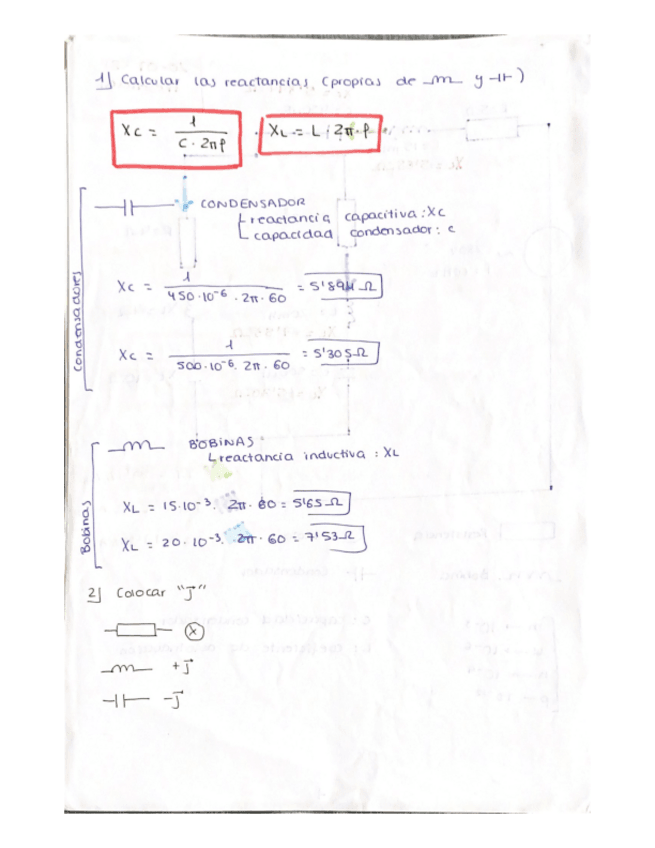 1) Calcular las reactancias (propias de y )
Xc = 1 / C · 2πf XL = L · 2π · f
CONDENSADOR
reactancia capacitiva : Xc
capacidad condensador : c
Condensadores
Xc = 1 / 450·10⁻⁶ · 2π · 60 = 5'894 Ω
Xc = 1 / 500·10⁻⁶ · 2π · 60 = 5'305 Ω
BOBINAS
reactancia inductiva : XL
Bobinas
XL = 15·10⁻³ · 2π · 60 = 5'65 Ω
XL = 20·10⁻³ · 2π · 60 = 7'53 Ω
2) Colocar "J"
X
+J
-J